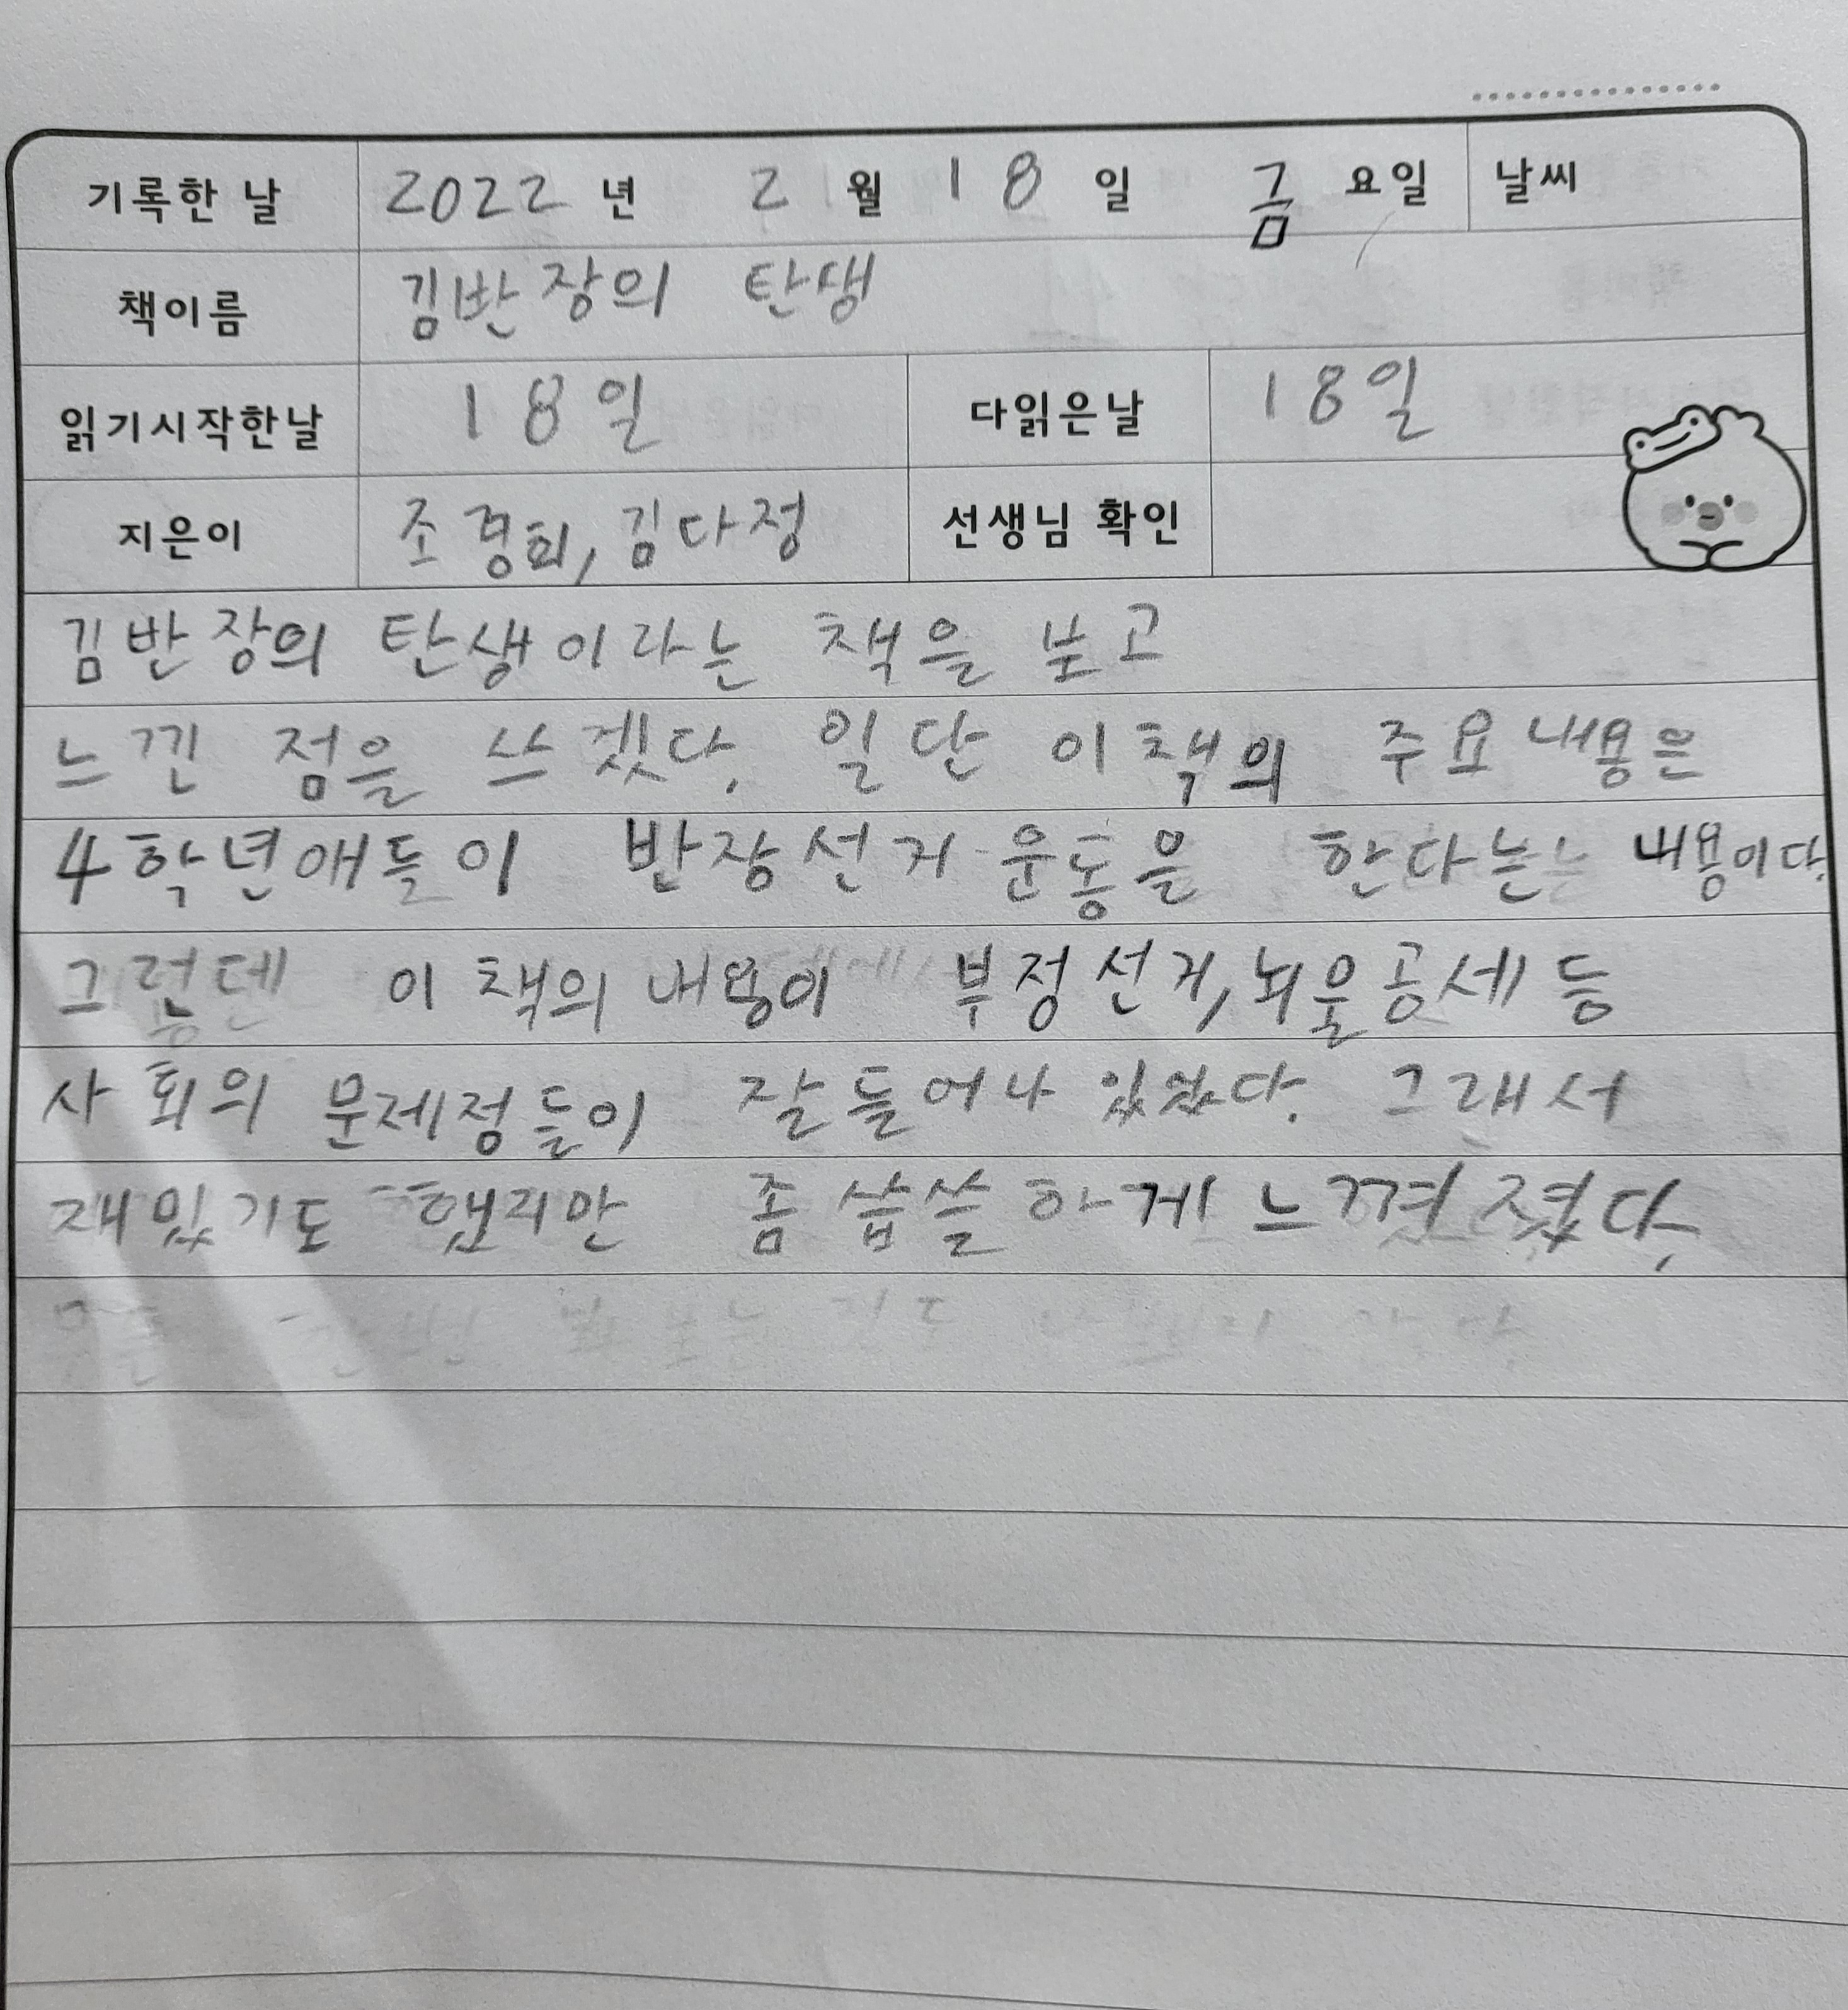 기록한 날 2022 년 2 월 18 일 금 요일 날씨
책이름 김반장의 탄생
읽기시작한날 18일 다읽은날 18일
지은이 조경희, 김다정 선생님 확인
김반장의 탄생이라는 책을 보고
느낀 점을 쓰겠다. 일단 이책의 주요내용은
4학년애들이 반장선거 운동을 한다는 내용이다.
그런데 이 책의 내용이 부정선거, 뇌물공세 등
사회의 문제정들이 잘 들어나 있었다. 그래서
재밌기도 했지만 좀 씁쓸하게 느껴졌다.